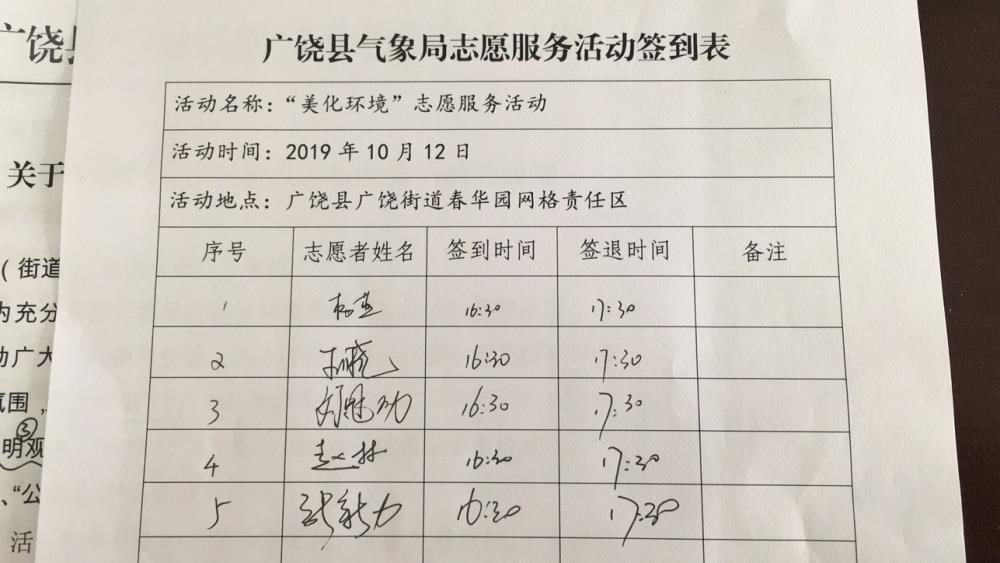 广饶县气象局志愿服务活动签到表
活动名称：“美化环境”志愿服务活动
活动时间：2019年10月12日
活动地点：广饶县广饶街道春华园网格责任区
序号 志愿者姓名 签到时间 签退时间 备注
1 16:30 17:30
2 16:30 17:30
3 16:30 17:30
4 赵林 16:30 17:30
5 16:30 17:30
广饶县
关于
（街道
内充分
动广大
氛围，
③
明观
、“公
活